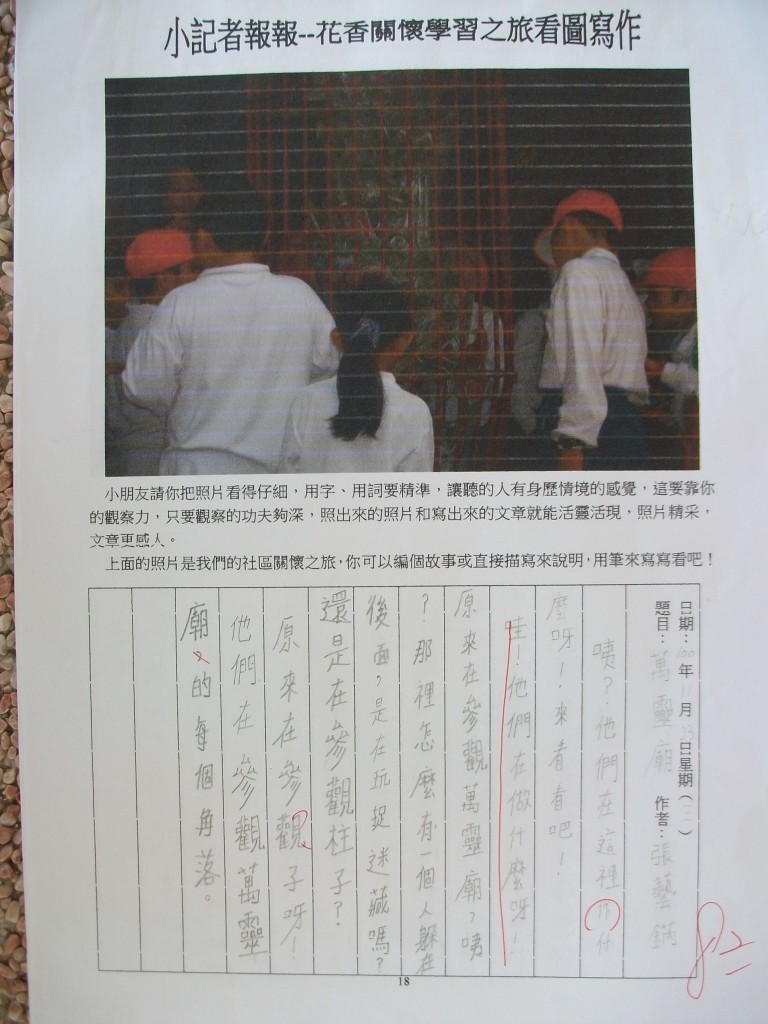 小記者報報--花香關懷學習之旅看圖寫作
小朋友請你把照片看得仔細，用字、用詞要精準，讓聽的人有身歷情境的感覺，這要靠你
的觀察力，只要觀察的功夫夠深，照出來的照片和寫出來的文章就能活靈活現，照片精采，
文章更感人。
上面的照片是我們的社區關懷之旅，你可以編個故事或直接描寫來說明，用筆來寫寫看吧！
日期：100年11月23日星期（三）
題目：萬靈廟 作者：張藝
咦？他們在這裡作什
麼呀！來看看吧！
哇！他們在做什麼呀！
原來在參觀萬靈廟，咦
？那裡怎麼有一個人躲在
後面，是在玩捉迷藏嗎？
還是在參觀柱子？
原來在參觀子呀！
他們在參觀萬靈
廟，的每個角落。
82
18